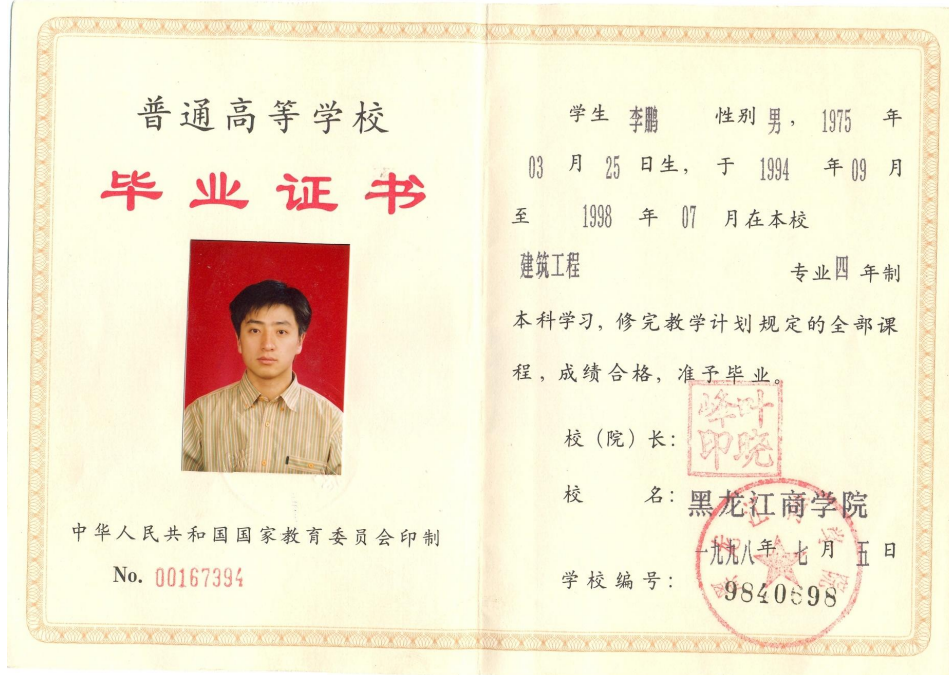 普通高等学校
毕业证书
中华人民共和国国家教育委员会印制
No. 00167394
学生 李鹏 性别 男, 1975 年
03 月 25 日生, 于 1994 年 09 月
至 1998 年 07 月在本校
建筑工程 专业 四 年制
本科学习, 修完教学计划规定的全部课
程, 成绩合格, 准予毕业。
校(院)长:
叶晓峰印
校 名: 黑龙江商学院
一九九八年 七 月 五 日
学校编号: 9840698